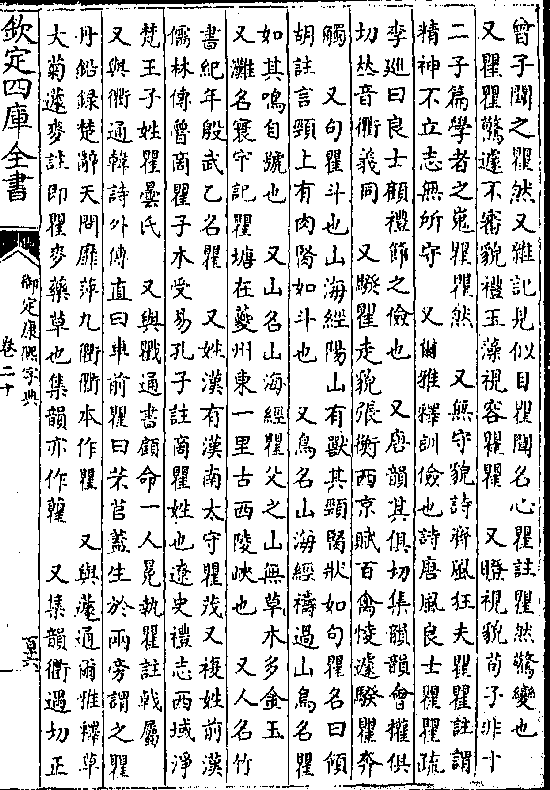 曾子聞之瞿然又雜記見似目瞿聞名心瞿註瞿然驚變也
又瞿瞿驚遽不審貌禮玉藻視容瞿瞿 又瞪視貌荀子非十
二子篇學者之嵬瞿瞿然 又無守貌詩齊風狂夫瞿瞿註謂
精神不立志無所守 又爾雅釋訓儉也詩唐風良士瞿瞿疏
李廵曰良士顧禮節之儉也 又唐韻其俱切集韻韻會權俱
切𠀤音衢義同 又騤瞿走貌張衡西京賦百禽㥄遽騤瞿奔
觸 又句瞿斗也山海經陽山有獸其頸䐡狀如句瞿名曰領
胡註言頸上有肉䐡如斗也 又鳥名山海經禱過山鳥名瞿
如其鳴自號也 又山名山海經瞿父之山無草木多金玉
又灘名寰宇記瞿塘在夔州東一里古西陵峽也 又人名竹
書紀年殷武乙名瞿 又姓漢有漢南太守瞿茂又複姓前漢
儒林傳魯商瞿子木受易孔子註商瞿姓也遼史禮志西域淨
梵王子姓瞿曇氏 又與戵通書顧命一人冕執瞿註戟屬
又與衢通韓詩外傳直曰車前瞿曰芣苢蓋生於兩旁謂之瞿
丹鉛録楚辭天問靡蓱九衢衢本作瞿 又與蘧通爾雅釋草
大菊蘧麥註即瞿麥藥草也集韻亦作 又集韻衢遇切正
欽定四庫全書
御定康熙字典
卷二十